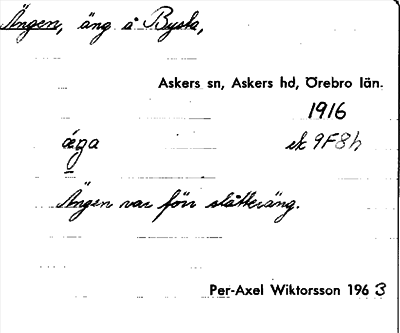 Ängen, äng å Bysta,
Askers sn, Askers hd, Örebro län.
1916
æŋa ek 9F8h
Ängen var förr slåtteräng.
Per-Axel Wiktorsson 1963